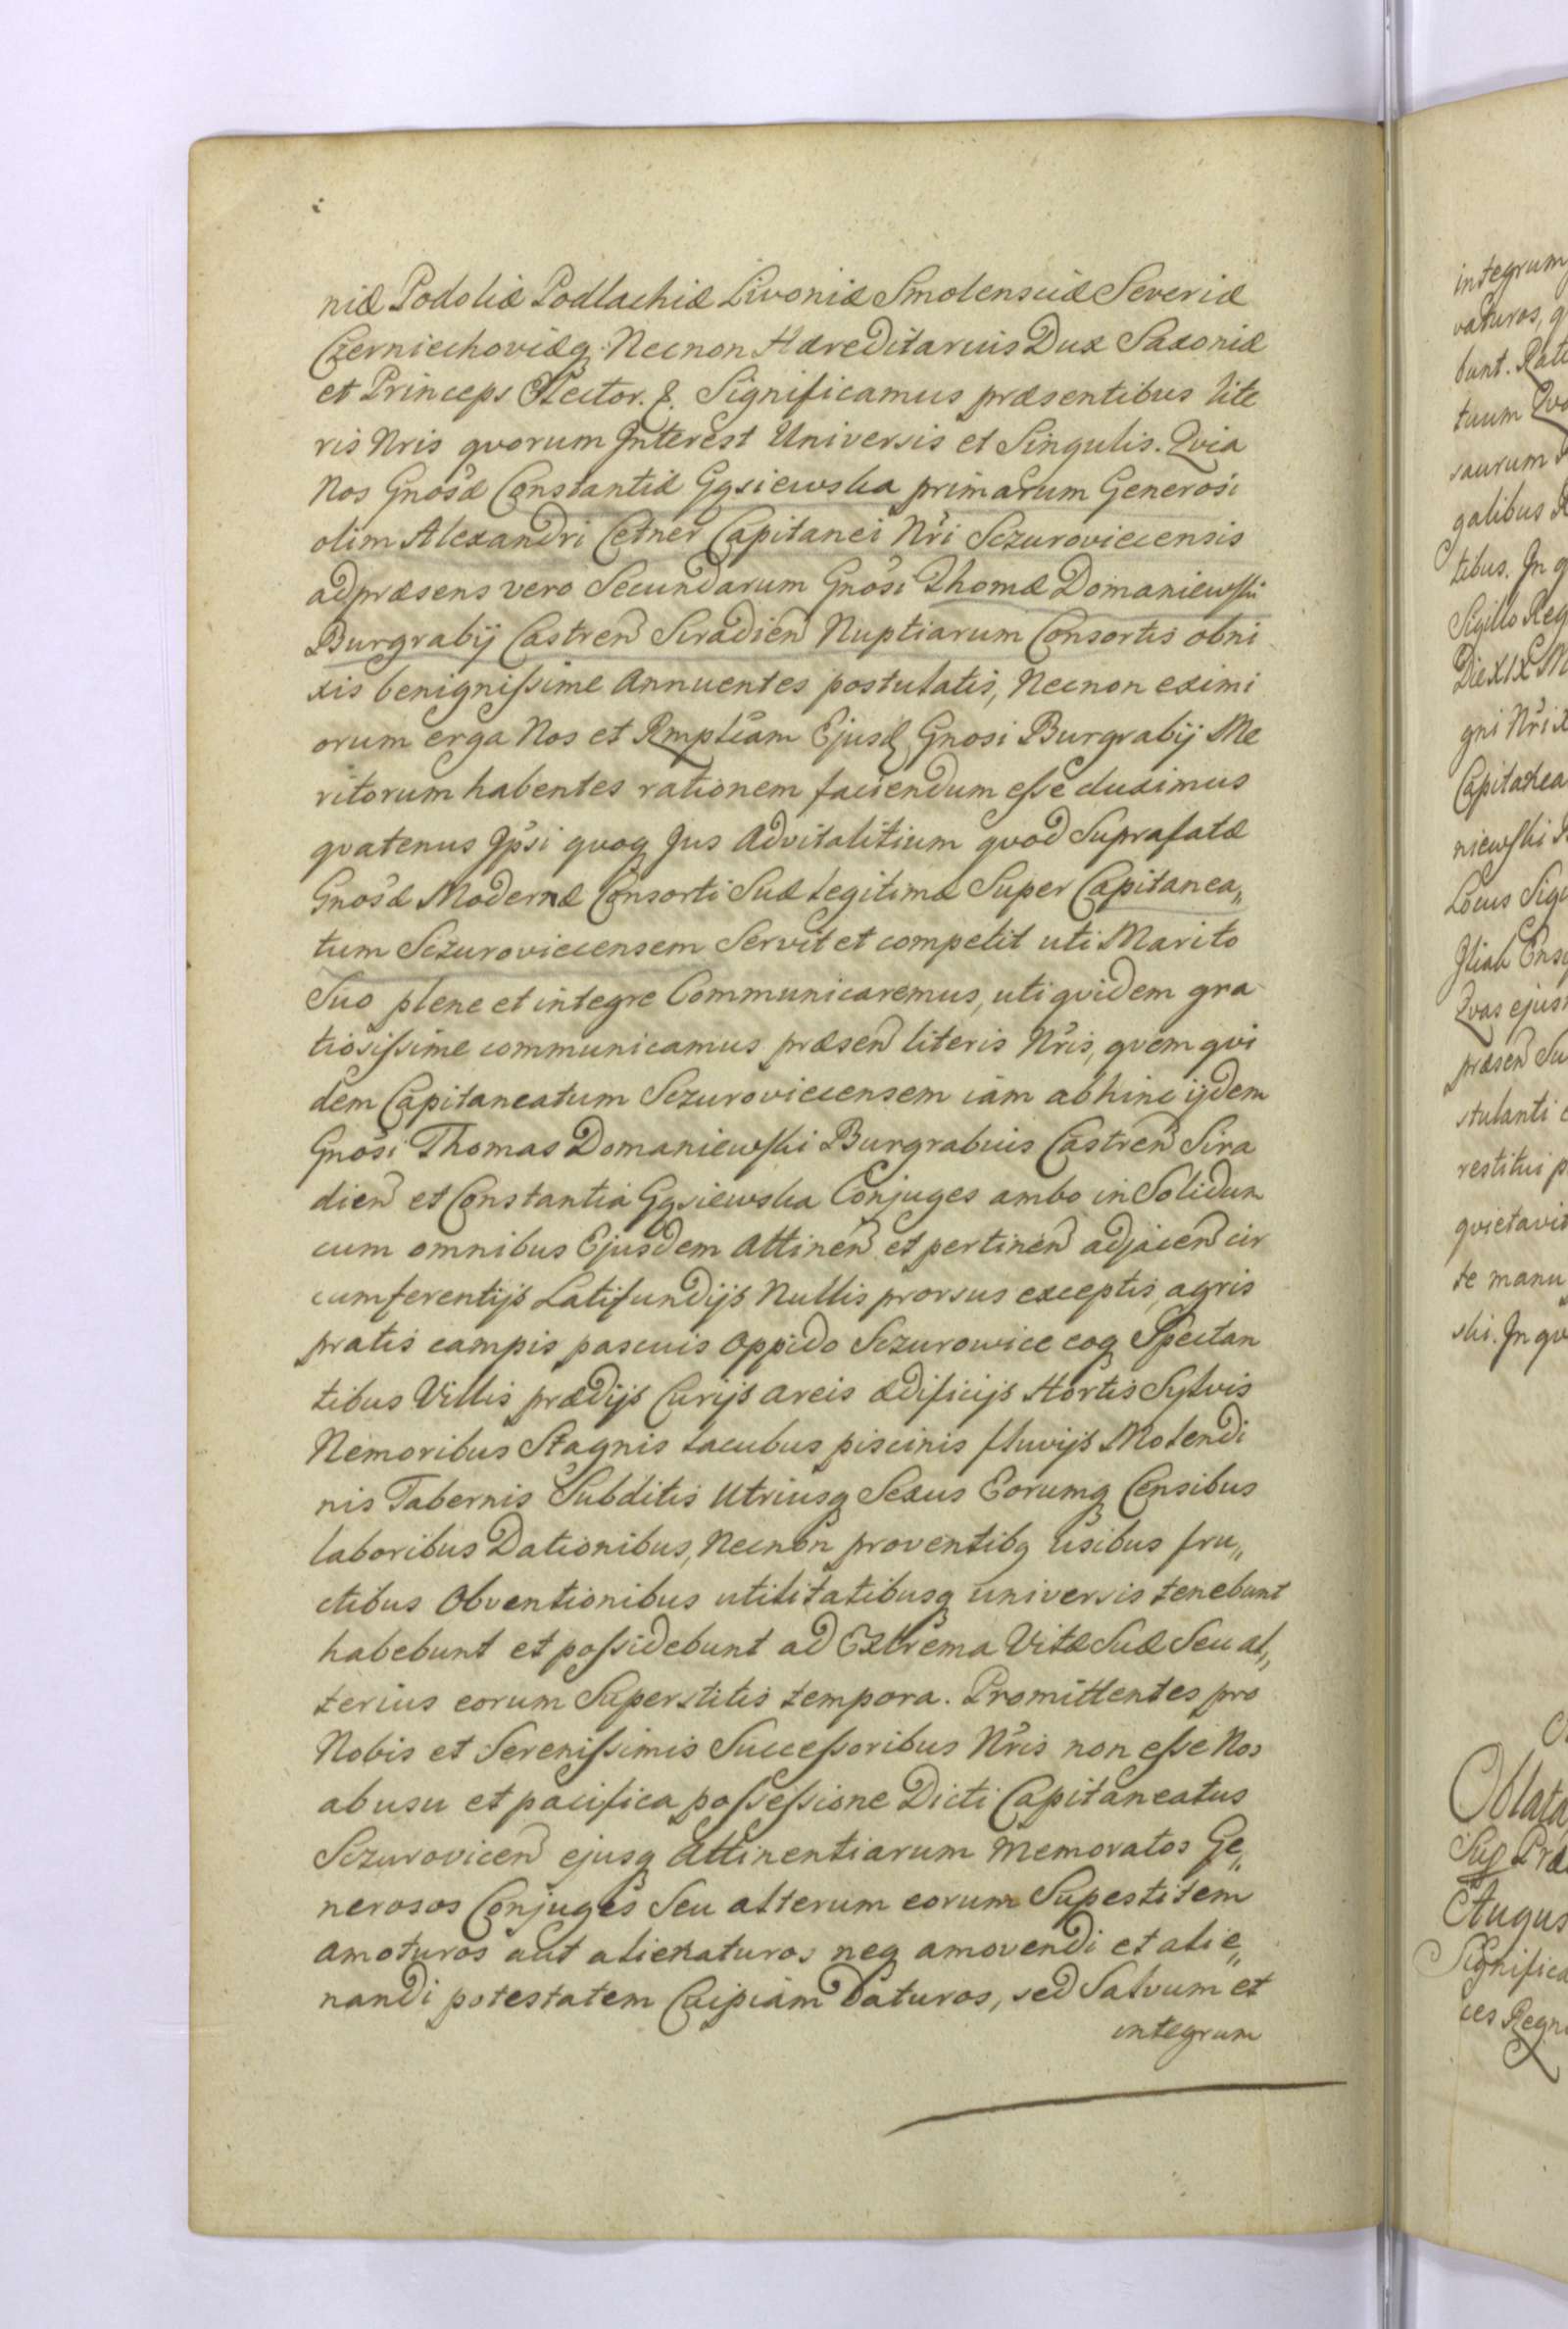 niæ Podoliæ Podlachiæ Livoniæ Smolensciæ Severiæ
Czerniechoviæq Necnon Hæreditarius Dux Saxoniæ
et Princeps Elector. &. Significamus præsentibus lite
ris Nris qvorum Interest Universis et Singulis. Qvia
Nos Gnosæ Constantiæ Gąsiewska primarum Generosi
olim Alexandri Cetner Capitanei Nri Sczuroviecensis
ad præsens vero Secundarum Gnosi Thomæ Domaniewski
Burgrabij Castren Siradien Nuptiarum Consortis obni
xis benignissime Annuentes postulatis, Necnon eximi
orum erga Nos et Rmplicam Ejusd Gnosi Burgrabij Me
ritorum habentes rationem faciendum esse duximus
qvatenus Ipsi qvoq Jus Advitalitium qvod Suprafatæ
Gnosæ Modernæ Consorti Suæ legitimæ Super Capitanea„
tum Sczuroviecensem Servit et competit uti Marito
Suo plene et integre Communicaremus, uti qvidem gra
tiosissime communicamus præsen literis Nris, qvem qvi
dem Capitaneatum Sczuroviecensem iam abhinc ijdem
Gnosi Thomas Domaniewski Burgrabius Castren Sira
dien et Constantia Gąsiewska Conjuges ambo in Solidum
cum omnibus Ejusdem Attinen et pertinen adjacen cir
cumferentijs Latifundijs Nullis prorsus exceptis, agris
pratis campis pascuis Oppido Sczurowice eoq Spectan
tibus Villis prædijs Curijs areis ædificijs Hortis Sylvis
Nemoribus Stagnis lacubus piscinis fluvijs Molendi
nis Tabernis Subditis Utriusq Sexus Eorumq Censibus
laboribus Dationibus, Necnon proventibq usibus fru„
ctibus Obventionibus utilitatibusq universis tenebunt
habebunt et possidebunt ad Extrema Vitæ Suæ Seu al„
terius eorum Superstitis tempora. Promittentes pro
Nobis et Serenissimis Successoribus Nris non esse Nos
ab usu et pacifica possessione Dicti Capitaneatus
Sczurovicen ejusq Attinentiarum memoratos Ge„
nerosos Conjuges Seu alterum eorum Supestitem
amoturos aut alienaturos neq amovendi et alie„
nandi potestatem Cuipiam Daturos, sed Salvum et
integrum
integrum
vaturos,
bunt.
tuum
saurum
galibus
tibus. In
Sigillo
Die XIX
gni Nri
Capitanea
niewski
Locus
Qvas
præsen
stulanti
restitui
qvietavit
te manu
ski. In
Oblata
Augus
Significa
ces